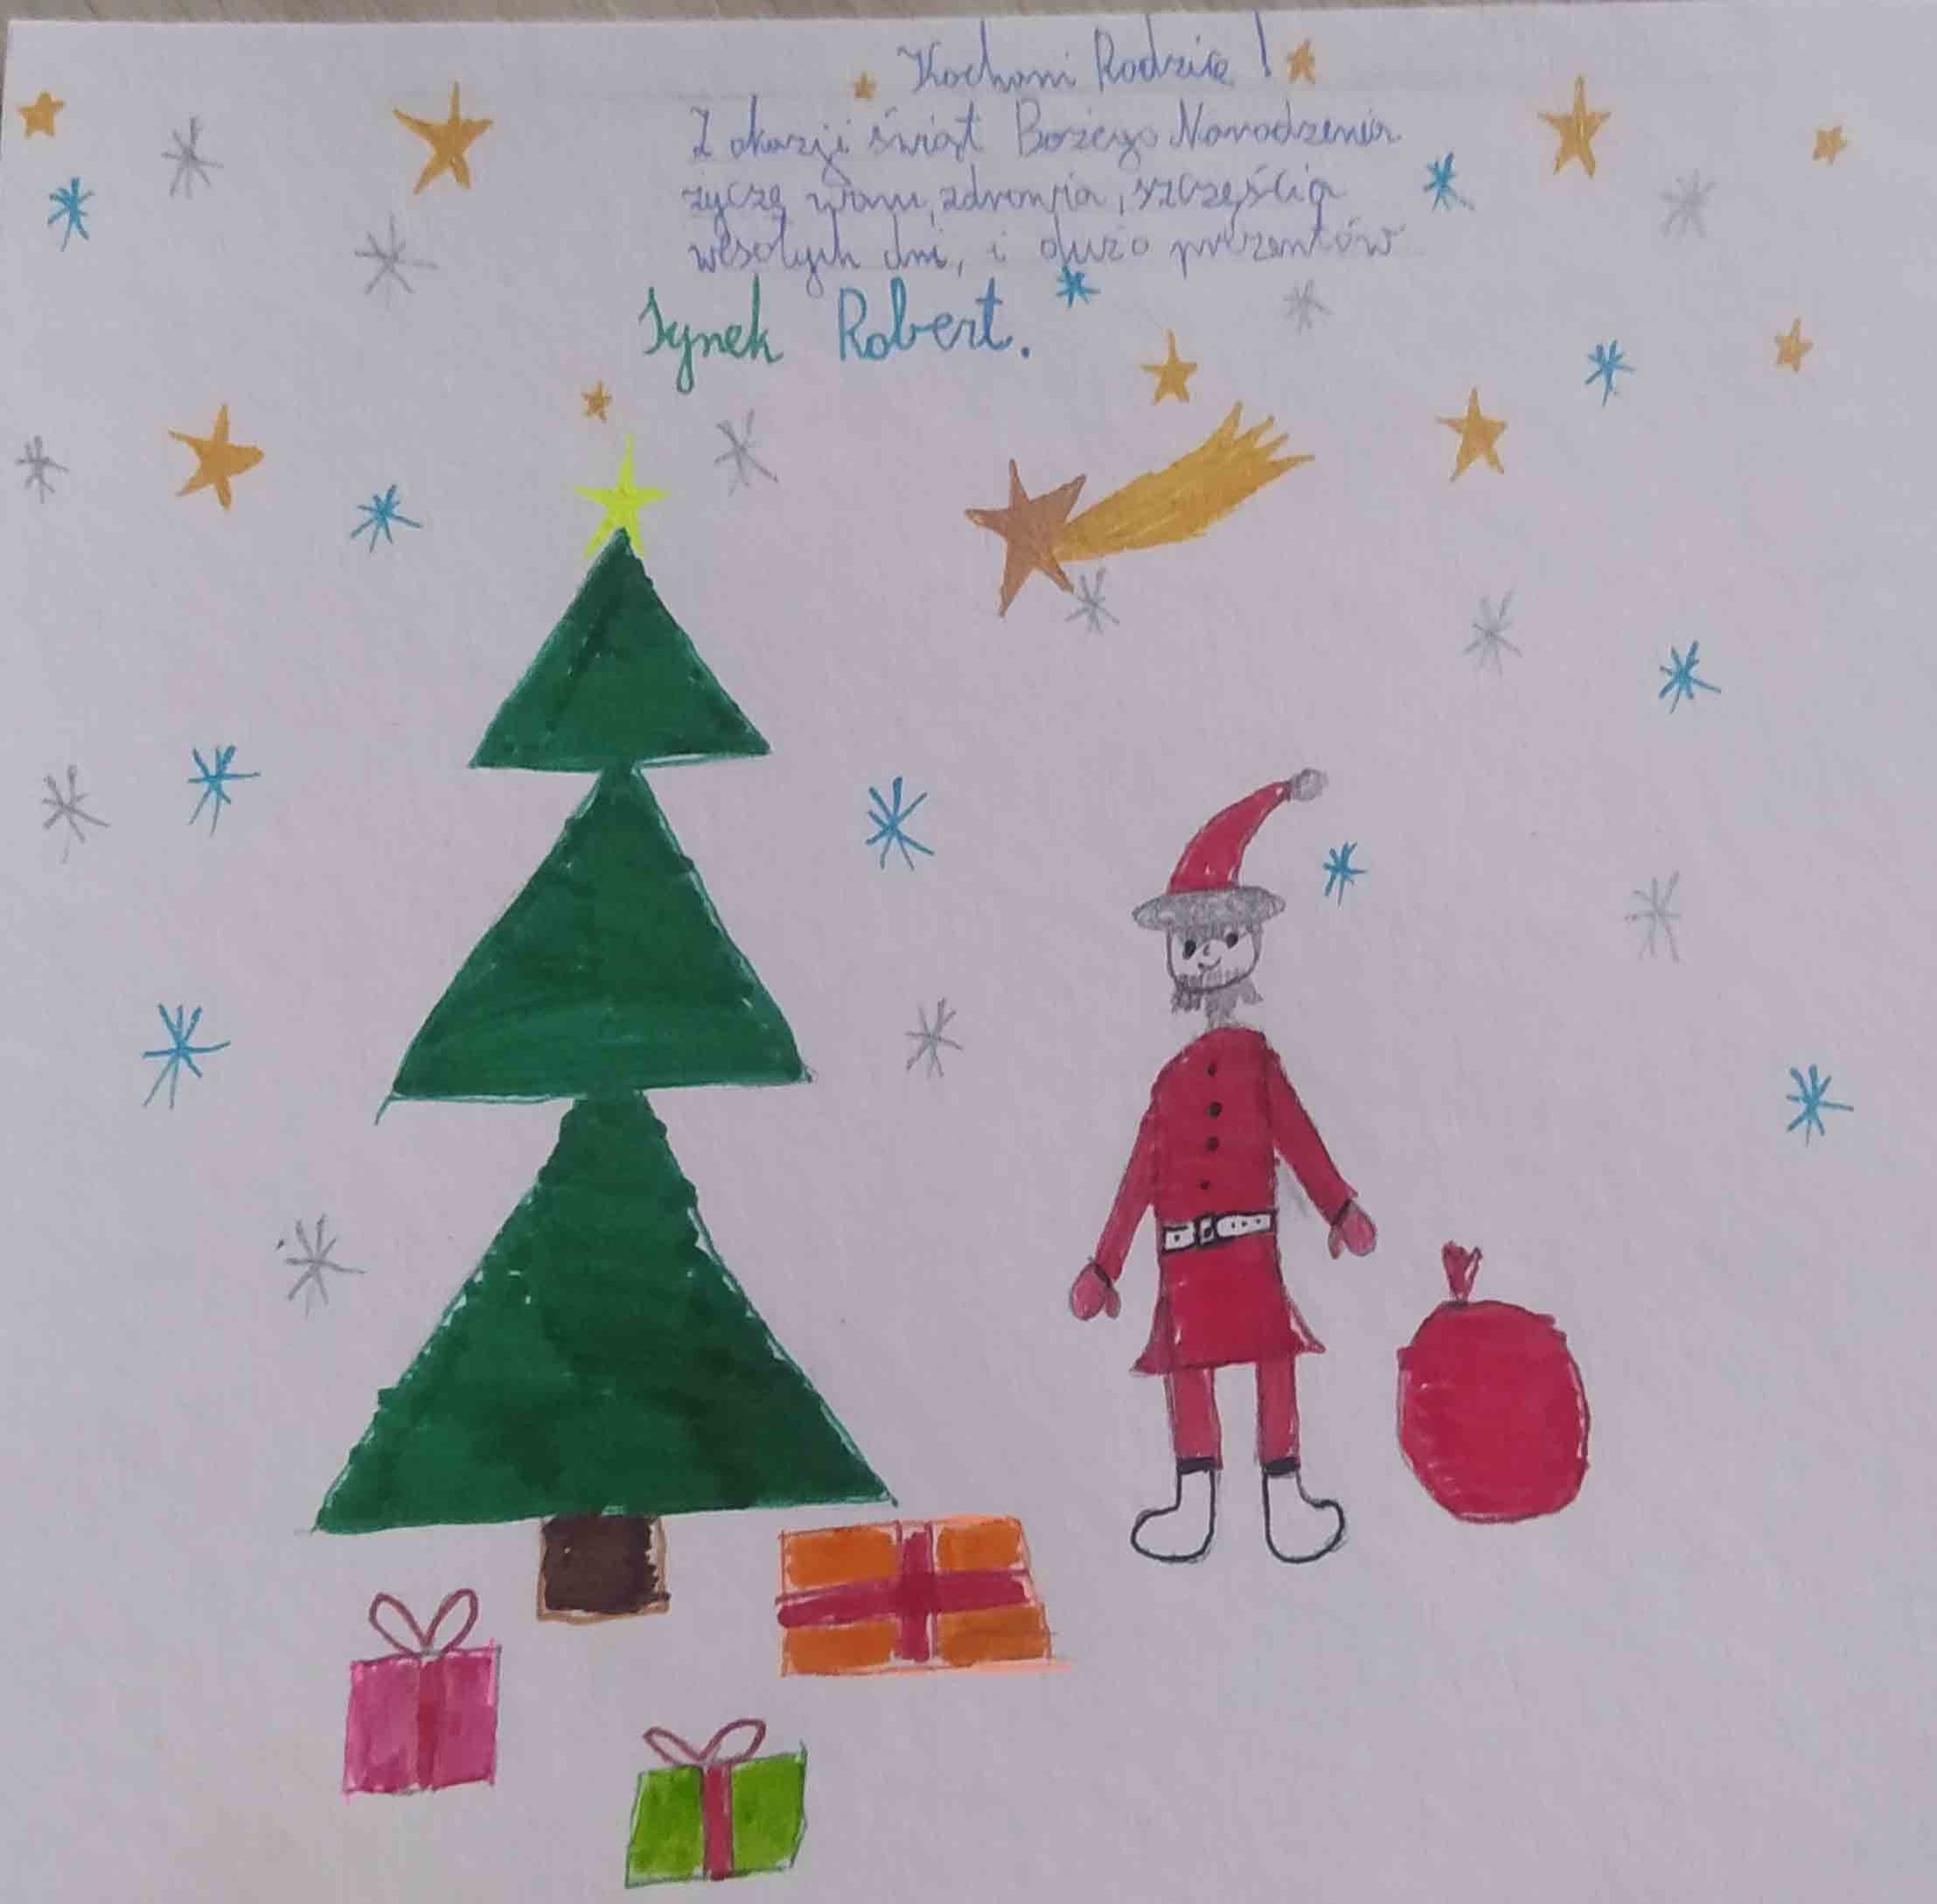 Kochani Rodzice!
Z okazji świąt Bożego Narodzenia
życzę wam, zdrowia, szczęścia
wesołych dni, i dużo prezentów
Synek Robert.